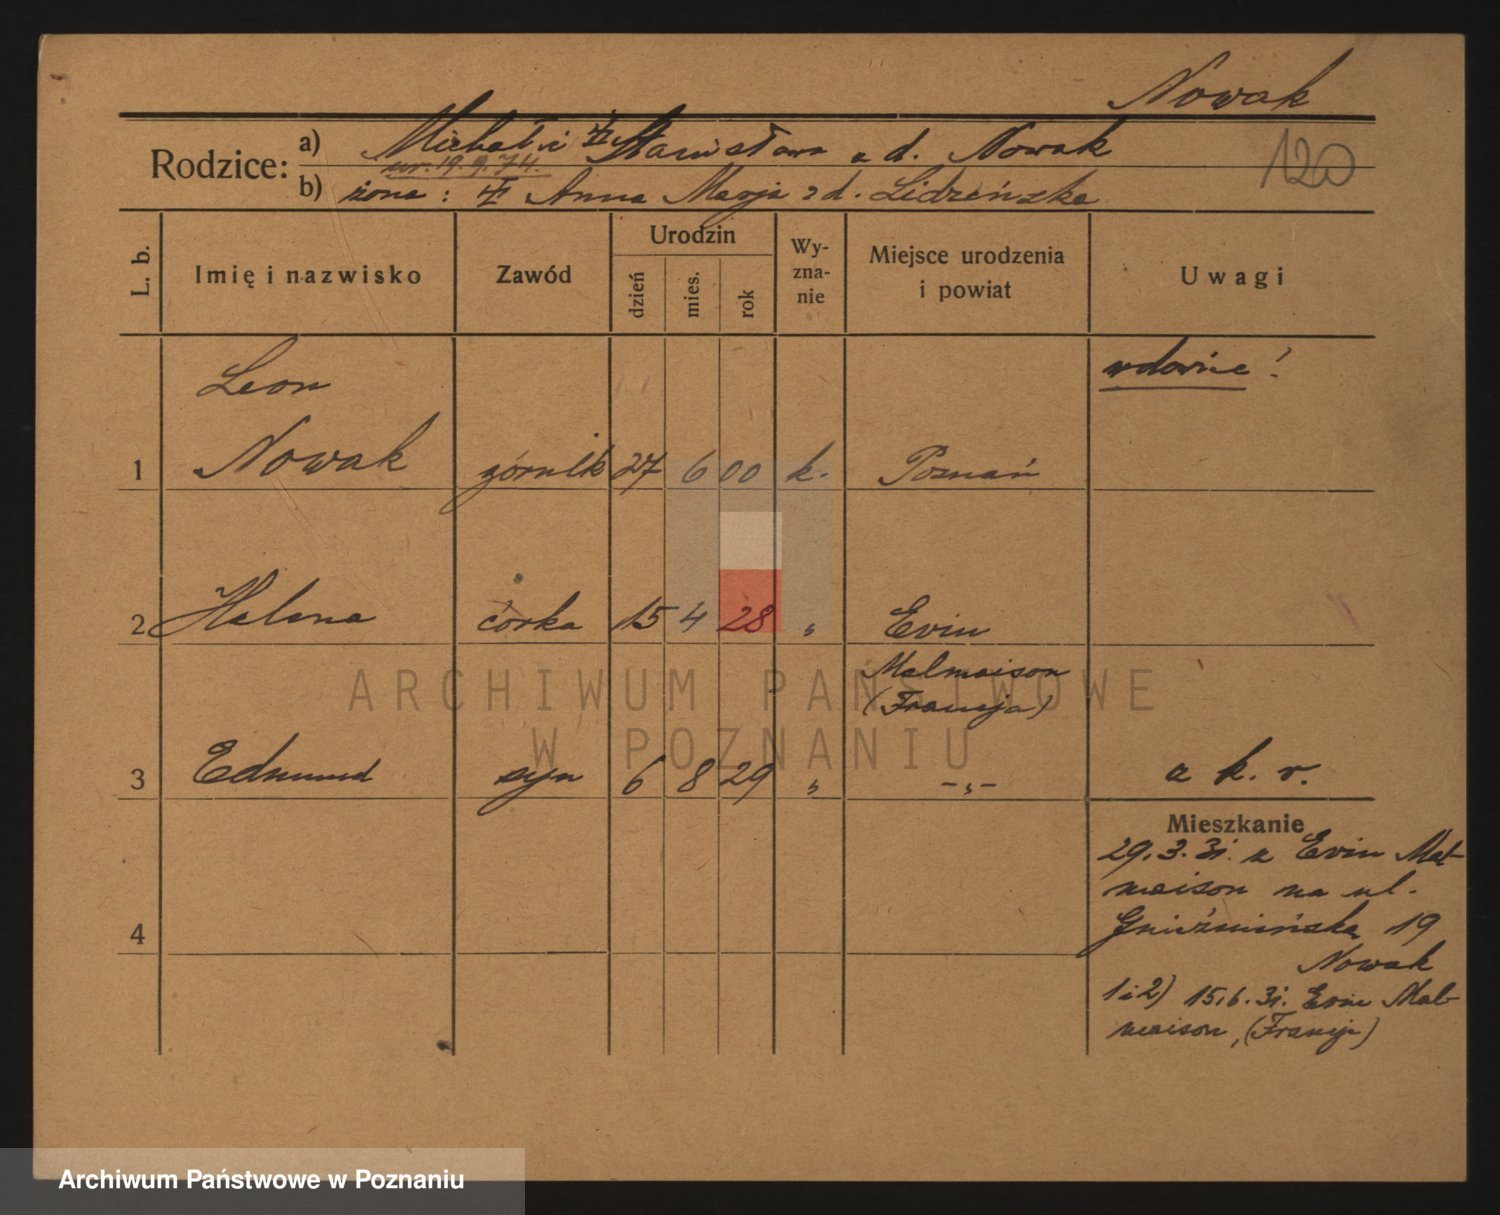 Nowak
120
Rodzice: a) Michał i ‡ Stanisława z d. Nowak
ur. 19.9.74.
b) żona: ‡ Anna Marja z d. Lidzeńska
L. b. Imię i nazwisko Zawód Urodzin dzień mies. rok Wy-zna-nie Miejsce urodzenia i powiat Uwagi
Leon wdowiec!
1 Nowak górnik 27 6 00 k. Poznań
2 Helena córka 15 4 28 „ Evin
Malmaison
(Francja)
3 Edmund syn 6 8 29 „ -„- a k. r.
Mieszkanie
29.3.31. z Evin Mal-
maison na ul.
4 Gnieźnieńska 19
Nowak
1 i 2) 15.6.31. Evin Mal-
maison, (Francja)
ARCHIWUM PAŃSTWOWE
W POZNANIU
Archiwum Państwowe w Poznaniu